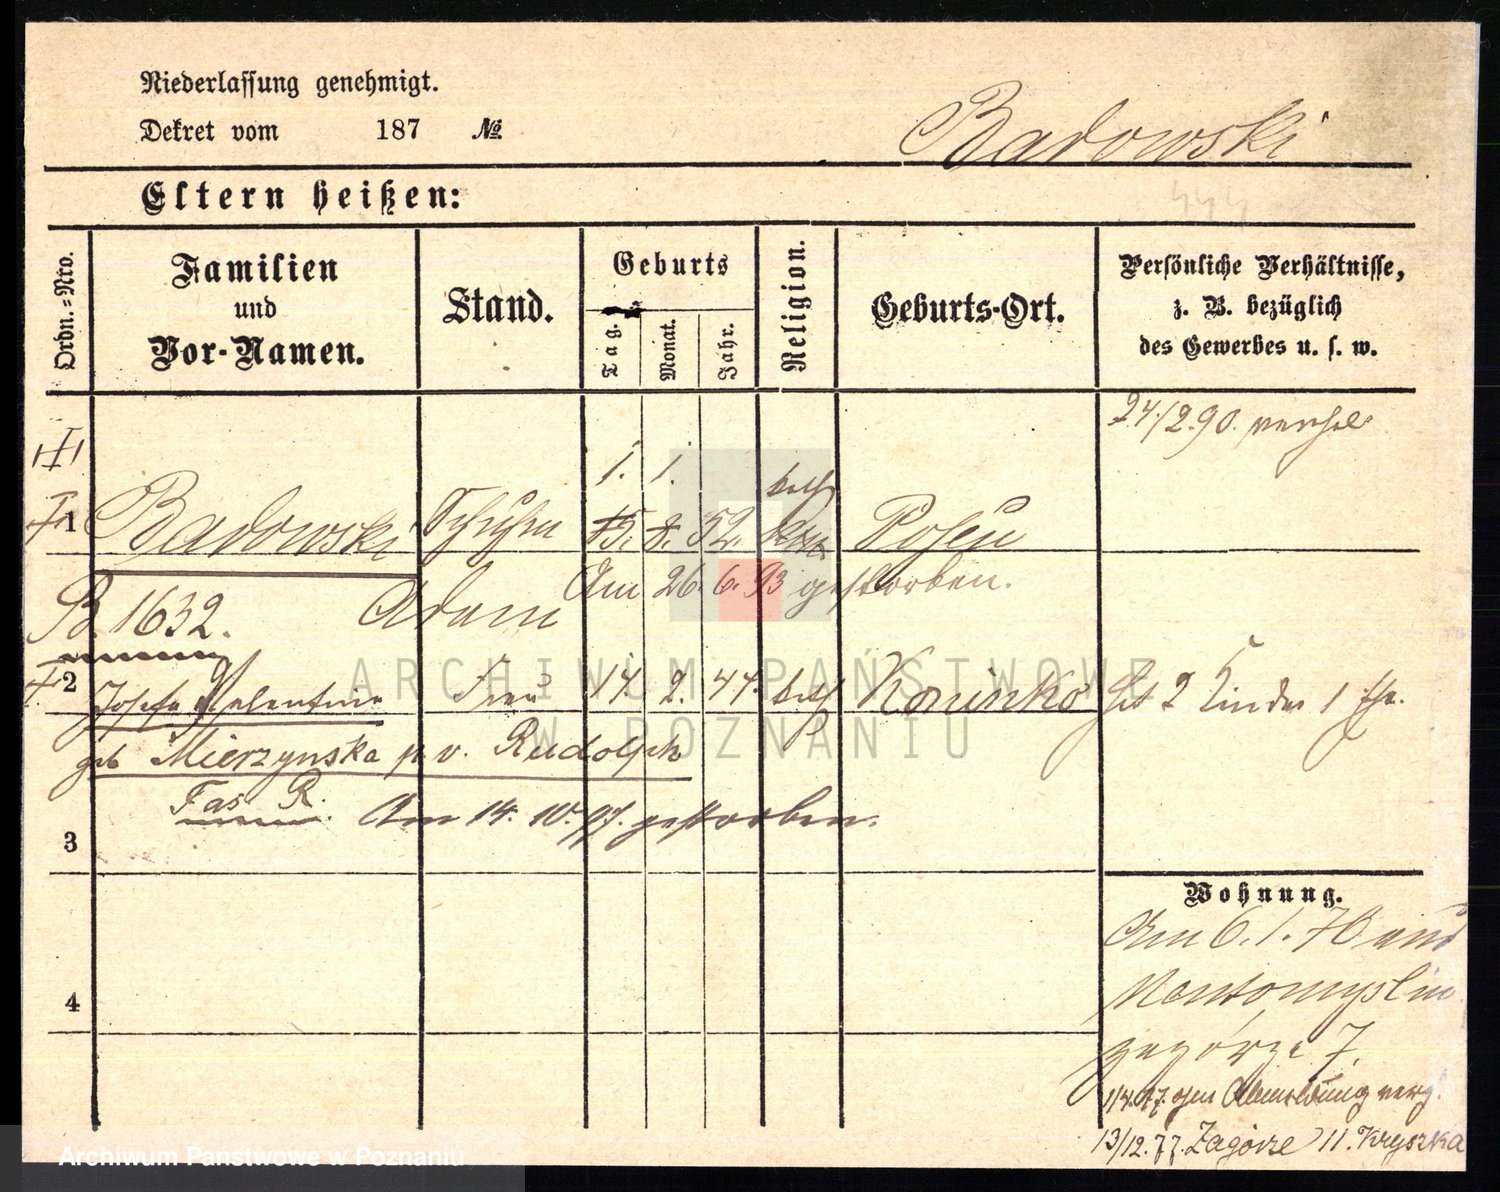 Niederlassung genehmigt.
Dekret vom 187 №
Badowski
Eltern heißen:
Ordn.=Nro.
Familien und Vor-Namen.
Stand.
Geburts
Tag.
Monat.
Jahr.
Religion.
Geburts-Ort.
Persönliche Verhältnisse, z. B. bezüglich des Gewerbes u. s. w.
24/2.90.
1. 1. kath
1 Badowski 15. 8. 52. Posen
Am 26. 6. 93 gestorben.
B. 1632. Adam
ARCHIWUM PAŃSTWOWE
2 Josefa Valentine Frau 14. 2. 47. kath hat 2 Kinder 1 Ehe.
W POZNANIU
geb Mierzynska v. Rudolph
Fas R. Am 14. 10. 97. gestorben.
3
Wohnung.
Am 6. 1. 70 aus
4
Zagórze 7.
Abmeldung
13/12.77. Zagórze 11. Kryszka
Archiwum Państwowe w Poznaniu